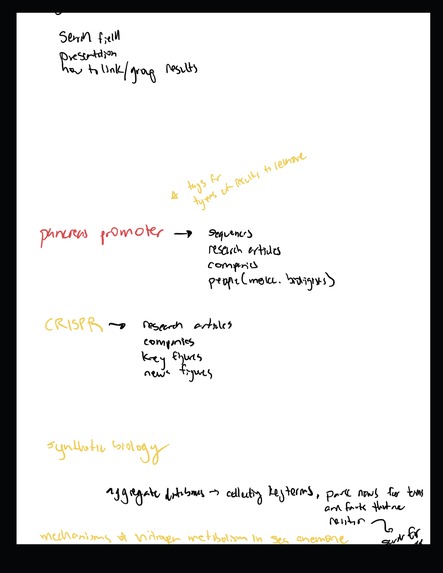 search field
presentation
how to link/group results
* tags for
types of results to remove
pancreas promoter → sequences
research articles
companies
people (molec. biologists)
CRISPR → research articles
companies
key figures
news figures
synthetic biology
aggregate databases → collecting key terms, parse news for terms
and facts that are
mechanisms of nitrogen metabolism in sea anemone